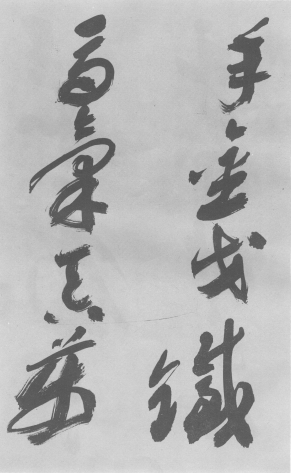 年金戈鐵
馬氣吞萬